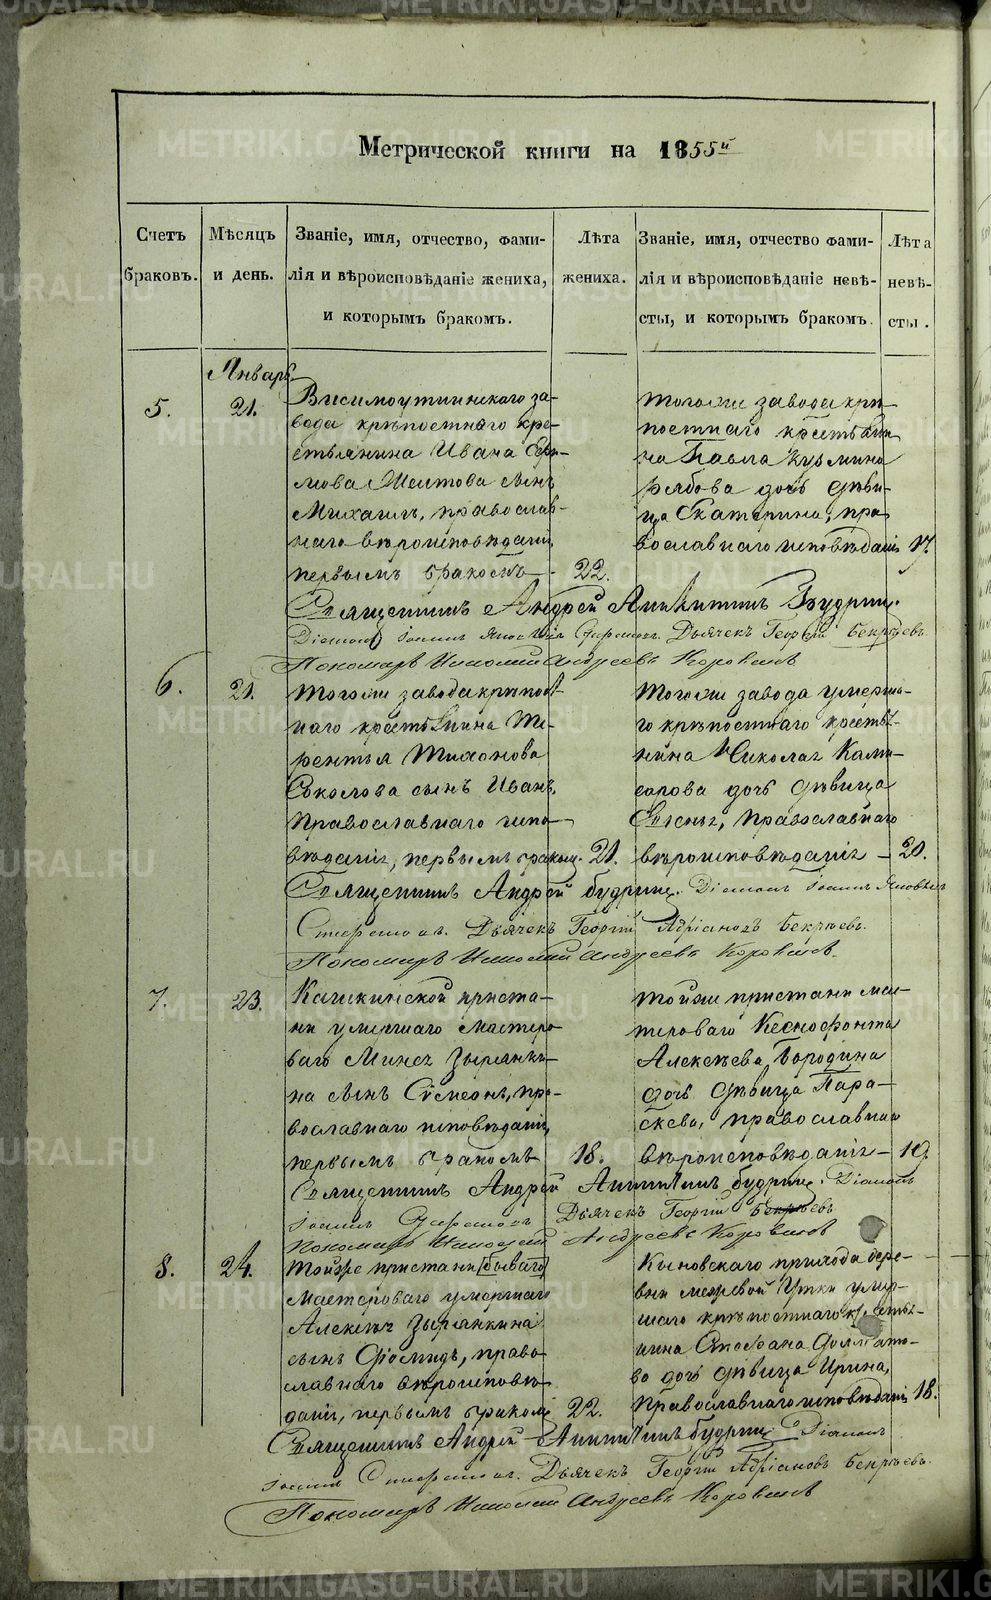 Метрической книги на 1855й
Счетъ браковъ.
Мѣсяцъ и день.
Званіе, имя, отчество, фами-
лія и вѣроисповѣданіе жениха,
и которымъ бракомъ.
Лѣта жениха.
Званіе, имя, отчество фами-
лія и вѣроисповѣданіе невѣ-
сты, и которымъ бракомъ.
Лѣта невѣ-
сты.
Январь
5.
21.
Висимоуткинскаго за-
вода крѣпостнаго кре-
стьянина Ивана
сынъ
Михаилъ, православ-
наго вѣроисповѣданія
первымъ бракомъ
22.
тогоже завода крѣ-
постнаго крестьяни
на Павла Кузмина
Рябова дочь дѣви-
ца Екатерина, пра
вославнаго исповѣданія
17.
Священникъ Андрей Аникитинъ Будринъ.
Діаконъ Іоаннъ Яковлевъ Дьячекъ Георгій Бекрѣевъ
Пономарь Николай Андреевъ Коровинъ
6.
21.
Тогоже завода крѣпост
наго крестьянина Те-
рентья Тихонова
Соколова сынъ Иванъ,
православнаго испо-
вѣданія, первымъ браком.
21.
Тогоже завода умерша-
го крѣпостнаго крестья-
нина Николая
дочь дѣвица
православнаго
вѣроисповѣданія
20.
Священникъ Андрей Будринъ. Діаконъ Іоаннъ Яковлевъ
Дьячекъ Георгій Адріановъ Бекрѣевъ.
Пономарь Николай Андреевъ Коровинъ.
7.
23.
Кашкинской приста-
ни умершаго мастеро-
ваго Минея Зырянки-
на сынъ Сѵмеонъ, пра-
вославнаго исповѣданія,
первымъ бракомъ
18.
тойже пристани мас-
тероваго Ксенофонта
Алексѣева Бородина
дочь дѣвица Пара-
скева, православнаго
вѣроисповѣданія
19.
Священникъ Андрей Аникитинъ Будринъ. Діаконъ
Іоаннъ Дьячекъ Георгій Бекрѣевъ
Пономарь Николай Андреевъ Коровинъ
8.
24.
Тойже пристани бываго
мастероваго умершаго
Алексѣя Зырянкина
сынъ право
славнаго вѣроисповѣ
данія, первымъ браком
22.
Кыновскаго прихода дере-
вни межевой Утки умер-
шаго крѣпостнаго крестья-
нина Стефана
во дочь дѣвица Ирина,
Православнаго исповѣданія
18.
Священникъ Андрей Аникитинъ Будринъ Діаконъ
Іоаннъ Дьячекъ Георгій Адріановъ Бекрѣевъ.
Пономарь Николай Андреевъ Коровинъ
METRIKI.GASO-URAL.RU